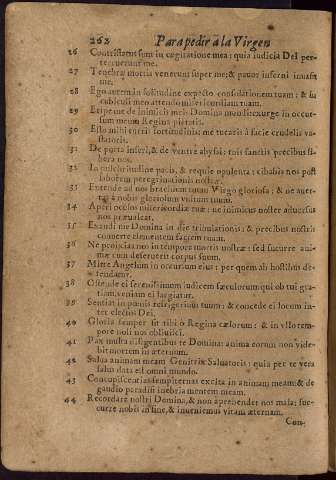 262 Para pedir à la Virgen
26 Contristatus sum in cogitatione mea: quia iudicia Dei per-
terruerunt me.
27 Tenebræ mortis venerunt super me; & pauor inferni inuasit
me.
28 Ego autem in solitudine expecto consolationem tuam: & in
cubiculi meo attendo misericordiam tuam.
29 Eripe me de inimicis meis Domina mundi: exurge in occur-
sum meum Regina pietatis.
30 Esto mihi turris fortitudinis: me tuearis à facie crudelis va-
statoris.
31 De porta inferi, & de ventre abyssi: tuis sanctis precibus li-
bera nos.
32 In pulchritudine pacis, & requie opulenta: cibabis nos post
laborem peregrinationis nostræ.
33 Extende ad nos brachium tuum Virgo gloriosa: & ne auer-
tas à nobis gloriosum vultum tuum.
34 Aperi oculos misericordiæ tuæ: ne inimicus noster aduersus
nos præualeat.
35 Exaudi me Domina in die tribulationis: & precibus nostris
conuerte clementem faciem tuam.
36 Ne proijcias nos in tempore mortis nostræ: sed sucurre ani-
mæ cum deseruerit corpus suum.
37 Mitte Angelum in occursum eius: per quem ab hostibus de-
fendamur.
38 Ostende ei serenissimum iudicem sæculorum: qui ob tui gra-
tiam veniam ei largiatur.
39 Sentiat in pœnis refrigerium tuum: & concede ei locum in-
ter electos Dei.
40 Gloria semper sit tibi ò Regina cælorum: & in vllo tem-
pore noli nos obliuisci.
41 Pax multa diligentibus te Domina: anima eorum non vide-
bit mortem in æternum.
42 Salua animam meam Genitrix Saluatoris: quia per te vera
salus data est omni mundo.
43 Concupiscentias sempiternas excita in animam meam: & de
gaudio paradisi inebria mentem meam.
44 Recordare nostri Domina, & non aprehendet nos mala: suc-
curre nobis in fine, & inueniemus vitam æternam.
Con-